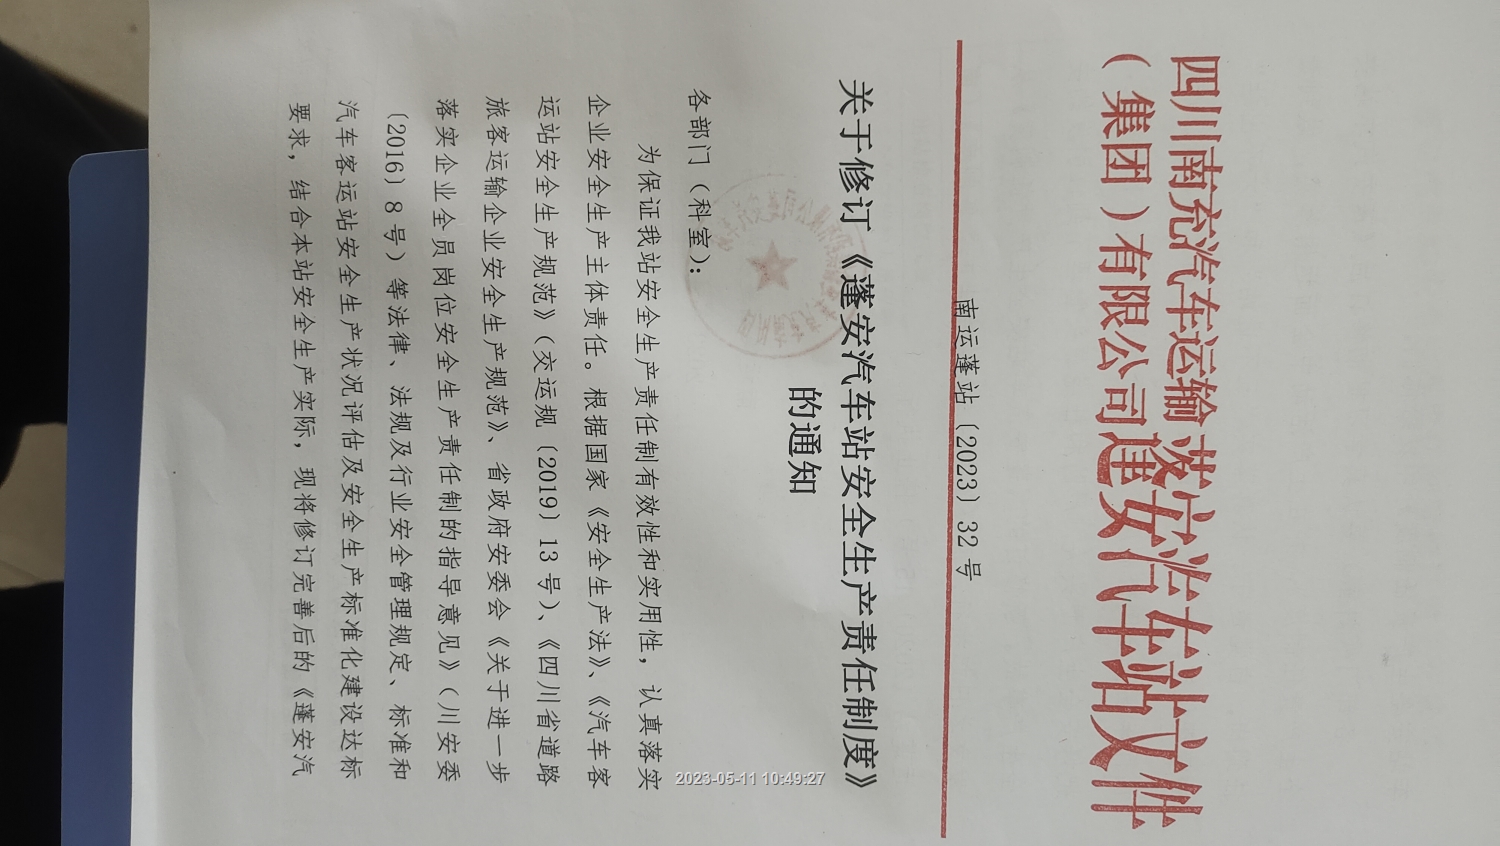 四川南充汽车运输
（集团）有限公司蓬安汽车站文件
南运蓬站〔2023〕32 号
关于修订《蓬安汽车站安全生产责任制度》
的通知
各部门（科室）：
为保证我站安全生产责任制有效性和实用性，认真落实
企业安全生产主体责任。根据国家《安全生产法》、《汽车客
运站安全生产规范》（交运规〔2019〕13 号）、《四川省道路
旅客运输企业安全生产规范》、省政府安委会《关于进一步
落实企业全员岗位安全生产责任制的指导意见》（川安委
〔2016〕8 号）等法律、法规及行业安全管理规定、标准和
汽车客运站安全生产状况评估及安全生产标准化建设达标
要求，结合本站安全生产实际，现将修订完善后的《蓬安汽
2023-05-11 10:49:27